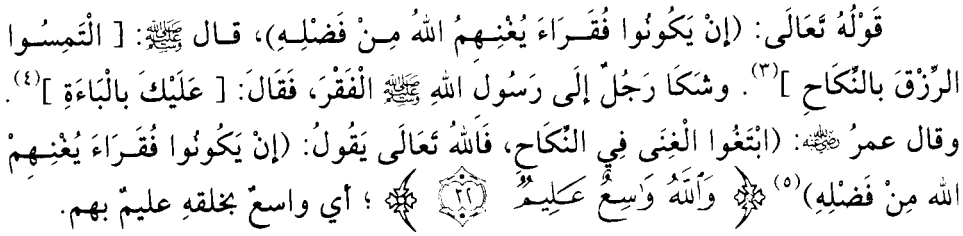 قَوْلُهُ تَعَالَى: (إِنْ يَكُونُوا فُقَرَاءَ يُغْنِهِمُ اللهُ مِنْ فَضْلِهِ)، قال ﷺ: [ الْتَمِسُوا
الرِّزْقَ بالنِّكَاحِ ]⁽٣⁾. وشَكَا رَجُلٌ إلَى رَسُول اللهِ ﷺ الْفَقْرَ، فَقَالَ: [ عَلَيْكَ بالْبَاءَةِ ]⁽٤⁾.
وقال عمرُ رضي الله عنه: (ابْتَغُوا الْغِنَى فِي النِّكَاحِ، فَاللهُ تَعَالَى يَقُولُ: (إنْ يَكُونُوا فُقَرَاءَ يُغْنِهِمْ
الله مِنْ فَضْلِهِ)⁽٥⁾ ﴿ وَٱللَّهُ وَٰسِعٌ عَلِيمٌ ٣٢ ﴾ ؛ أي واسعٌ بخلقهِ عليمٌ بهم.